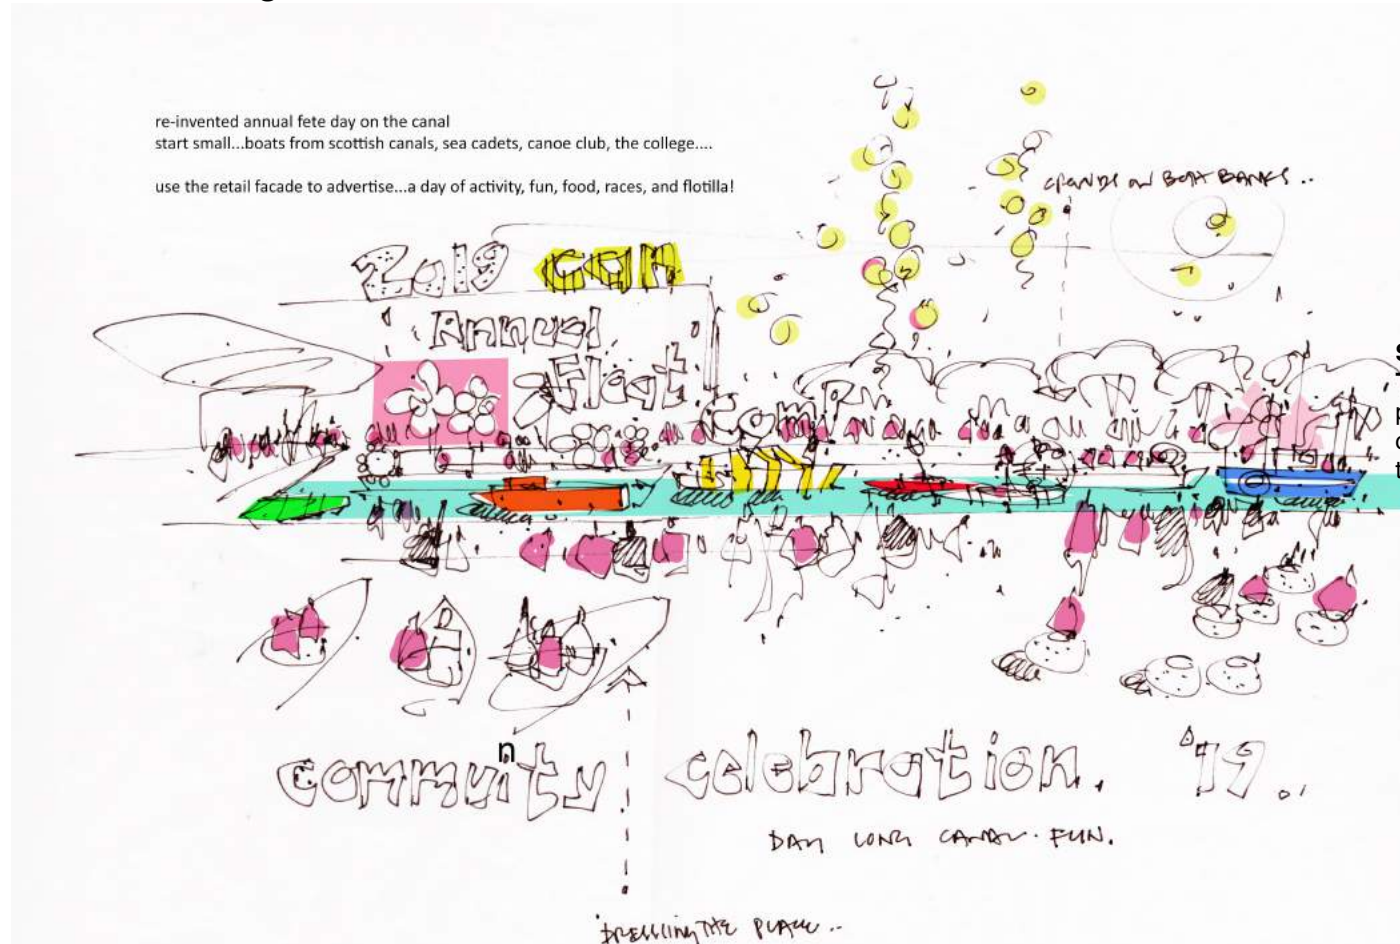 re-invented annual fete day on the canal
start small...boats from scottish canals, sea cadets, canoe club, the college....
use the retail facade to advertise...a day of activity, fun, food, races, and flotilla!
BOTH BANKS..
2019 can
Annual
Float
n
commuity celebration. '19..
DAY LONG CANAL. FUN.
DRESSING THE PLACE..